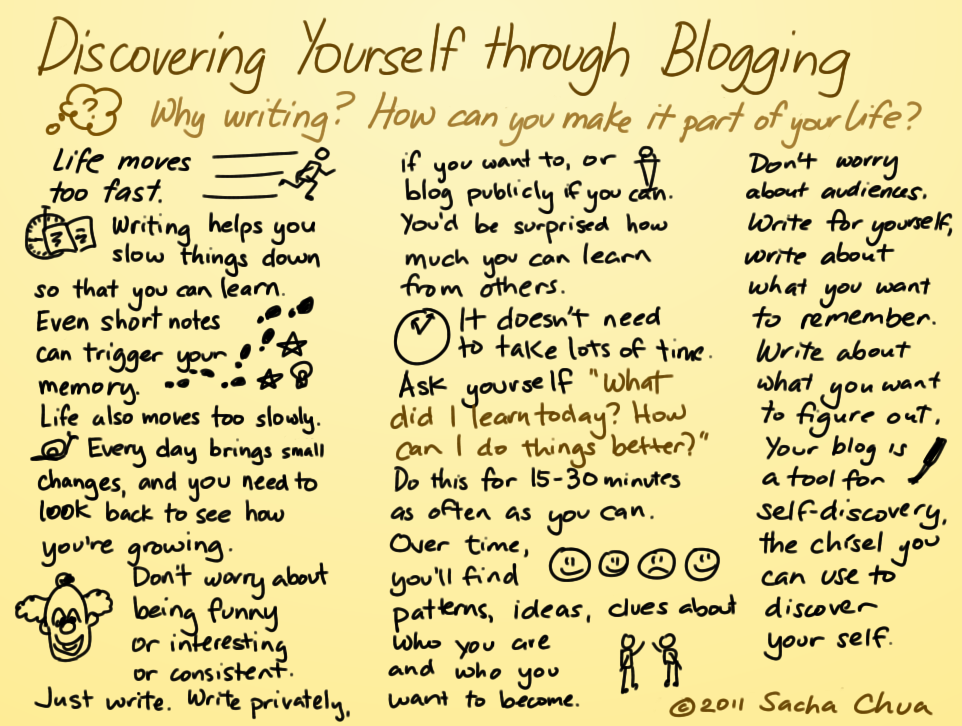 Discovering Yourself through Blogging
?
Why writing? How can you make it part of your life?
Life moves
too fast.
Writing helps you
slow things down
so that you can learn.
Even short notes
can trigger your
memory.
Life also moves too slowly.
Every day brings small
changes, and you need to
look back to see how
you're growing.
Don't worry about
being funny
or interesting
or consistent.
Just write. Write privately,
if you want to, or
blog publicly if you can.
You'd be surprised how
much you can learn
from others.
It doesn't need
to take lots of time.
Ask yourself "What
did I learn today? How
can I do things better?"
Do this for 15-30 minutes
as often as you can.
Over time,
you'll find
patterns, ideas, clues about
who you are
and who you
want to become.
Don't worry
about audiences.
Write for yourself,
write about
what you want
to remember.
Write about
what you want
to figure out.
Your blog is
a tool for
self-discovery,
the chisel you
can use to
discover
your self.
© 2011 Sacha Chua